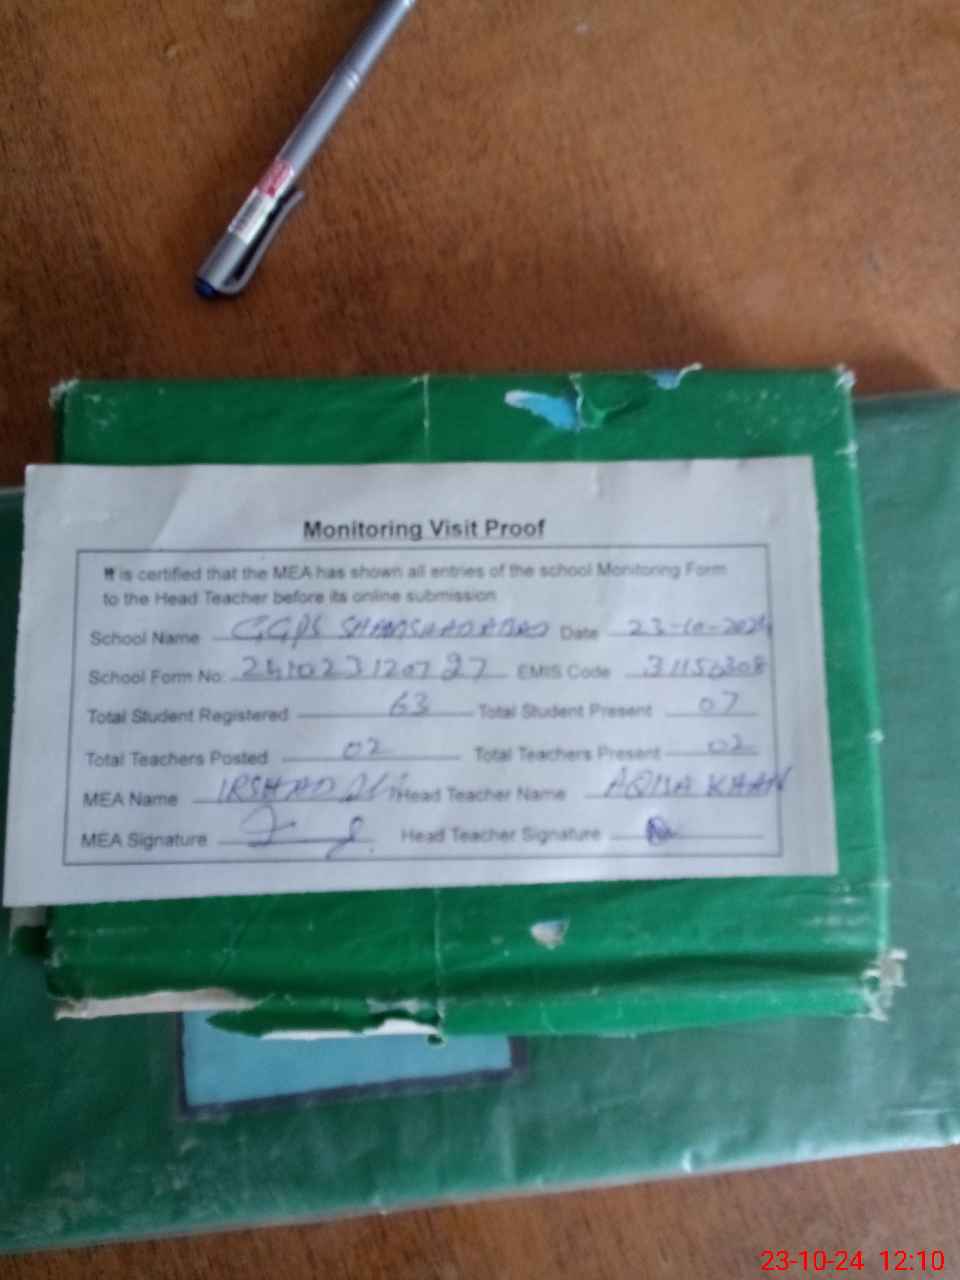 Monitoring Visit Proof
It is certified that the MEA has shown all entries of the school Monitoring Form
to the Head Teacher before its online submission
School Name GGPS SHAMSHADABAD Date 23-10-2024
School Form No: 241023120727 EMIS Code 31156308
Total Student Registered 63 Total Student Present 07
Total Teachers Posted 02 Total Teachers Present 02
MEA Name IRSHAD ALI Head Teacher Name KHAN
MEA Signature Head Teacher Signature
23-10-24 12:10